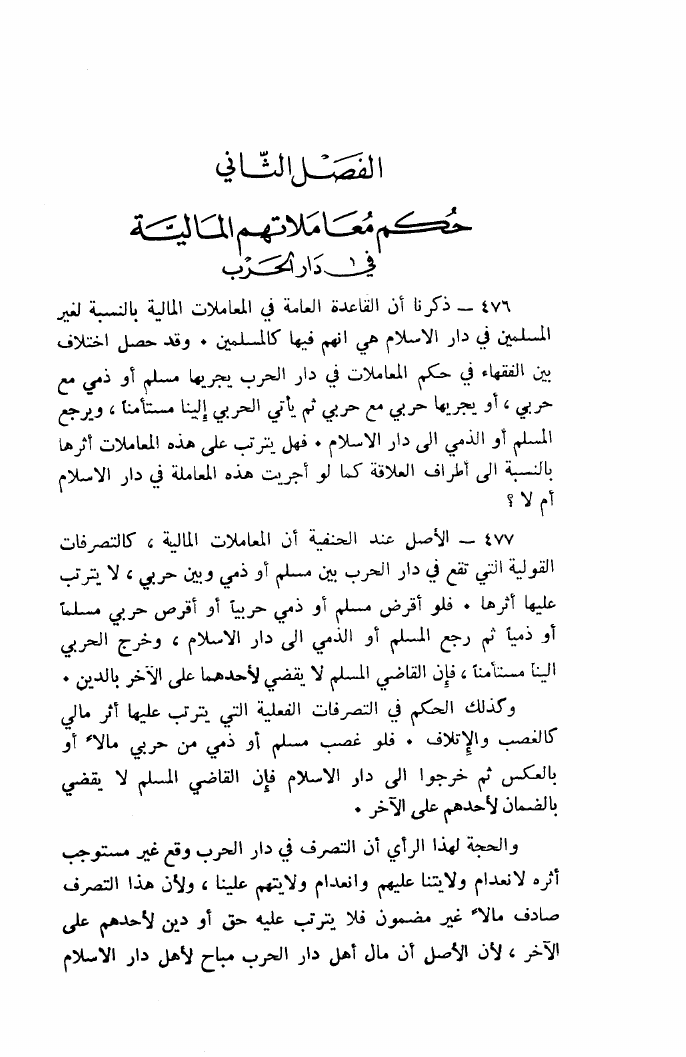 الفَصَل الثَّاني
حُكم مُعَامَلاتهم المَاليَّة
في دَار الحَرْب
٤٧٦ – ذكرنا أن القاعدة العامة في المعاملات المالية بالنسبة لغير
المسلمين في دار الاسلام هي انهم فيها كالمسلمين ٠ وقد حصل اختلاف
بين الفقهاء في حكم المعاملات في دار الحرب يجريها مسلم أو ذمي مع
حربي ، أو يجريها حربي مع حربي ثم يأتي الحربي إلينا مستأمناً ، ويرجع
المسلم أو الذمي الى دار الاسلام ٠ فهل يترتب على هذه المعاملات أثرها
بالنسبة الى أطراف العلاقة كما لو أجريت هذه المعاملة في دار الاسلام
أم لا ؟
٤٧٧ – الأصل عند الحنفية أن المعاملات المالية ، كالتصرفات
القولية التي تقع في دار الحرب بين مسلم أو ذمي وبين حربي ، لا يترتب
عليها أثرها ٠ فلو أقرض مسلم أو ذمي حربياً أو أقرص حربي مسلماً
أو ذمياً ثم رجع المسلم أو الذمي الى دار الاسلام ، وخرج الحربي
الينا مستأمناً ، فإن القاضي المسلم لا يقضي لأحدهما على الآخر بالدين ٠
وكذلك الحكم في التصرفات الفعلية التي يترتب عليها أثر مالي
كالغصب والإتلاف ٠ فلو غصب مسلم أو ذمي من حربي مالاً أو
بالعكس ثم خرجوا الى دار الاسلام فإن القاضي المسلم لا يقضي
بالضمان لأحدهم على الآخر ٠
والحجة لهذا الرأي أن التصرف في دار الحرب وقع غير مستوجب
أثره لانعدام ولايتنا عليهم وانعدام ولايتهم علينا ، ولأن هذا التصرف
صادف مالاً غير مضمون فلا يترتب عليه حق أو دين لأحدهم على
الآخر ، لأن الأصل أن مال أهل دار الحرب مباح لأهل دار الاسلام